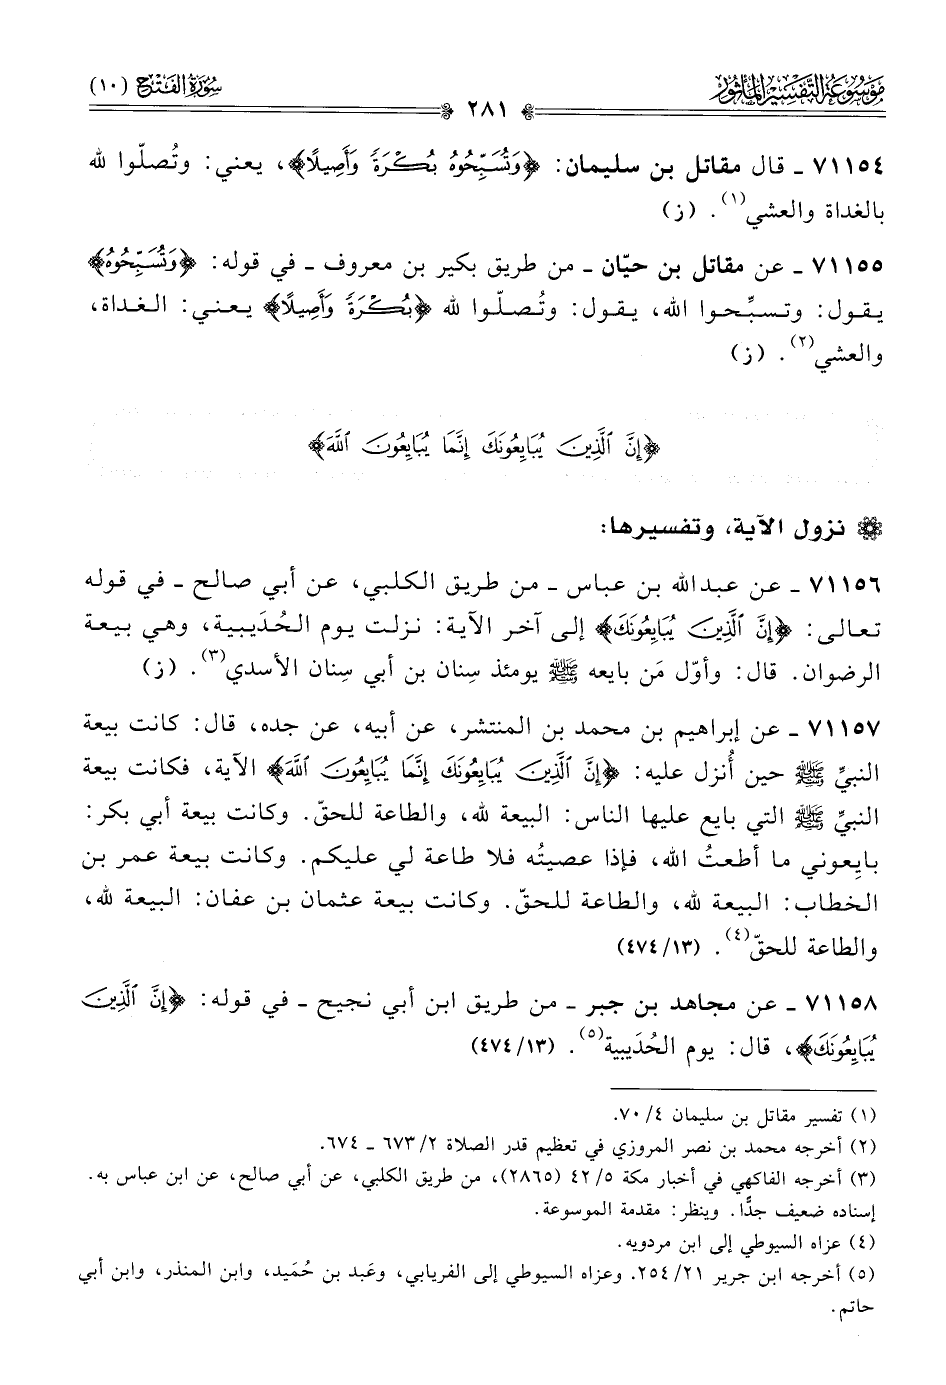 مَوْسُوعَةُ التَّفْسِيرِ المَأْثُورِ
سُورَةُ الفَتْحِ (١٠)
٢٨١
٧١١٥٤ ـ قال مقاتل بن سليمان: ﴿وَتُسَبِّحُوهُ بُكْرَةً وَأَصِيلًا﴾، يعني: وتُصلّوا لله
بالغداة والعشي(١). (ز)
٧١١٥٥ ـ عن مقاتل بن حيّان ـ من طريق بكير بن معروف ـ في قوله: ﴿وَتُسَبِّحُوهُ﴾
يقول: وتسبِّحوا الله، يقول: وتُصلّوا لله ﴿بُكْرَةً وَأَصِيلًا﴾ يعني: الغداة،
والعشي(٢). (ز)
﴿إِنَّ ٱلَّذِينَ يُبَايِعُونَكَ إِنَّمَا يُبَايِعُونَ ٱللَّهَ﴾
نزول الآية، وتفسيرها:
٧١١٥٦ ـ عن عبدالله بن عباس ـ من طريق الكلبي، عن أبي صالح ـ في قوله
تعالى: ﴿إِنَّ ٱلَّذِينَ يُبَايِعُونَكَ﴾ إلى آخر الآية: نزلت يوم الحُدَيبية، وهي بيعة
الرضوان. قال: وأوّل مَن بايعه ﷺ يومئذ سِنان بن أبي سِنان الأسدي(٣). (ز)
٧١١٥٧ ـ عن إبراهيم بن محمد بن المنتشر، عن أبيه، عن جده، قال: كانت بيعة
النبيِّ ﷺ حين أُنزل عليه: ﴿إِنَّ ٱلَّذِينَ يُبَايِعُونَكَ إِنَّمَا يُبَايِعُونَ ٱللَّهَ﴾ الآية، فكانت بيعة
النبيِّ ﷺ التي بايع عليها الناس: البيعة لله، والطاعة للحقّ. وكانت بيعة أبي بكر:
بايِعوني ما أطعتُ الله، فإذا عصيتُه فلا طاعة لي عليكم. وكانت بيعة عمر بن
الخطاب: البيعة لله، والطاعة للحقّ. وكانت بيعة عثمان بن عفان: البيعة لله،
والطاعة للحقّ(٤). (٤٧٤/١٣)
٧١١٥٨ ـ عن مجاهد بن جبر ـ من طريق ابن أبي نجيح ـ في قوله: ﴿إِنَّ ٱلَّذِينَ
يُبَايِعُونَكَ﴾، قال: يوم الحُدَيبية(٥). (٤٧٤/١٣)
(١) تفسير مقاتل بن سليمان ٧٠/٤.
(٢) أخرجه محمد بن نصر المروزي في تعظيم قدر الصلاة ٦٧٣/٢ ـ ٦٧٤.
(٣) أخرجه الفاكهي في أخبار مكة ٤٢/٥ (٢٨٦٥)، من طريق الكلبي، عن أبي صالح، عن ابن عباس به.
إسناده ضعيف جدًّا. وينظر: مقدمة الموسوعة.
(٤) عزاه السيوطي إلى ابن مردويه.
(٥) أخرجه ابن جرير ٢٥٤/٢١. وعزاه السيوطي إلى الفريابي، وعَبد بن حُمَيد، وابن المنذر، وابن أبي
حاتم.